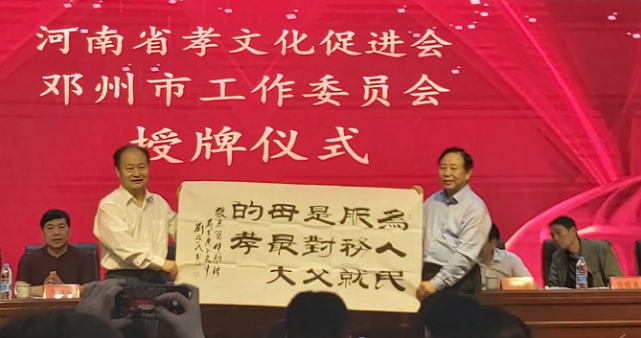 河南省孝文化促进会
邓州市工作委员会
授牌仪式
為人民
服務就
是對父
母最大
的孝